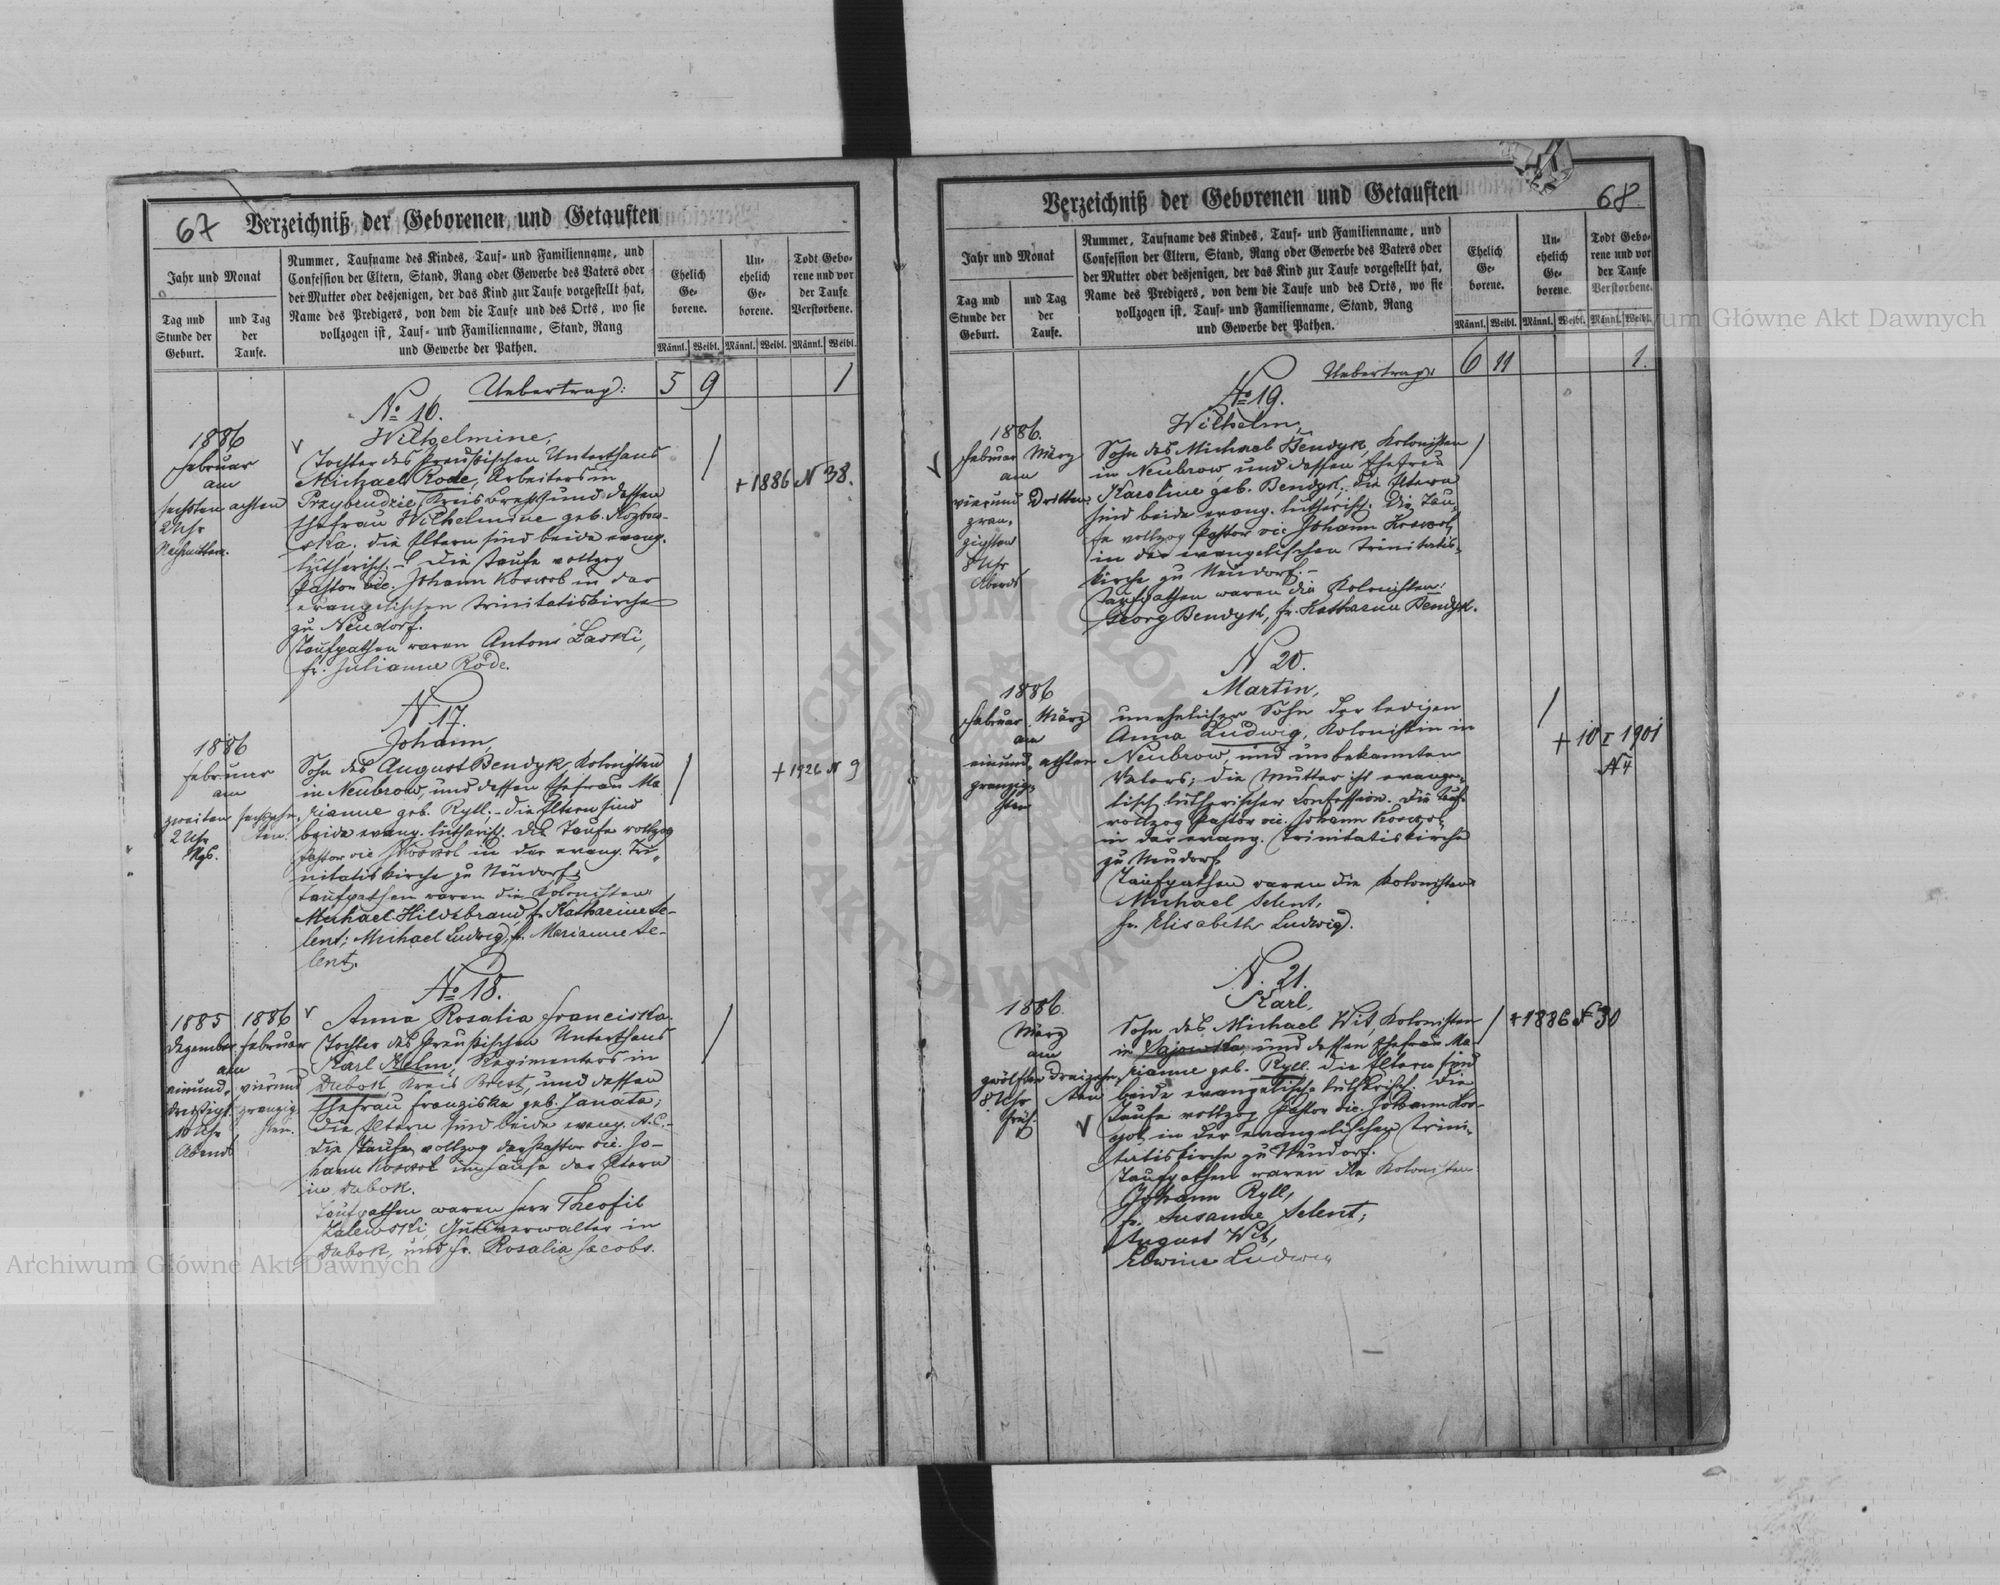 67
Verzeichniß der Geborenen und Getauften
Jahr und Monat
Tag und
Stunde der
Geburt.
und Tag
der
Taufe.
Nummer, Taufname des Kindes, Tauf- und Familienname, und
Confession der Eltern, Stand, Rang oder Gewerbe des Vaters oder
der Mutter oder desjenigen, der das Kind zur Taufe vorgestellt hat,
Name des Predigers, von dem die Taufe und des Orts, wo sie
vollzogen ist, Tauf- und Familienname, Stand, Rang
und Gewerbe der Pathen.
Ehelich
Ge-
borene.
Un-
ehelich
Ge-
borene.
Todt Gebo-
rene und vor
der Taufe
Verstorbene.
Männl. Weibl. Männl. Weibl. Männl. Weibl.
Uebertrag: 5 9 1
No 16.
Wilhelmine,
1886
Februar
am
sechsten achten
2 Uhr
Nachmittm.
Tochter des Preußischen Unterthans
Michael Rode, Arbeiters in
Przybrudzie, Kreis Brest und dessen
Ehefrau Wilhelmine geb. Kozlow-
ska; die Eltern sind beide evang.
lutherisch. – Die Taufe vollzog
Pastor vic. Johann Koswol in der
evangelischen Trinitatiskirche
zu Neudorf.
Taufpathen waren Antons Laski,
fr. Julianne Rode.
+ 1886 N 38.
N 17.
Johann,
1886
Februar
am
zweiten sechszehn-
2 Uhr ten.
Mgs.
Sohn des August Bendyk, Kolonisten
in Neubrow, und dessen Ehefrau Ma
rianne geb. Ryll. – Die Eltern sind
beide evang. lutherisch. Die Taufe vollzog
Pastor vic J Koswol in der evang. Tri-
nitatiskirche zu Neudorf.
Taufpathen waren die Kolonisten:
Michael Hildebrand, fr. Katharine Se-
lent; Michael Ludwig, fr. Marianne Se-
lent.
+ 1926 N 9
No 18.
Anna Rosalia Franciska.
1885 1886
Dezember Februar
am
einund- vierund
dreißigst. zwanzig-
10 Uhr sten.
Abends
Tochter des Preußischen Unterthans
Karl Helm, Regimenters in
Dubok Kreis Brest, und dessen
Ehefrau Franziska geb. Janata;
die Eltern sind beide evang. A. C. –
Die Taufe vollzog der Pastor vic. Jo-
hann Koswol im Hause der Eltern
in Dubok.
Taufpathen waren Herr Theofil
Zalewski, Gutsverwalter in
Dubok, und fr. Rosalia Jacobs.
68
Verzeichniß der Geborenen und Getauften
Jahr und Monat
Tag und
Stunde der
Geburt.
und Tag
der
Taufe.
Nummer, Taufname des Kindes, Tauf- und Familienname, und
Confession der Eltern, Stand, Rang oder Gewerbe des Vaters oder
der Mutter oder desjenigen, der das Kind zur Taufe vorgestellt hat,
Name des Predigers, von dem die Taufe und des Orts, wo sie
vollzogen ist, Tauf- und Familienname, Stand, Rang
und Gewerbe der Pathen.
Ehelich
Ge-
borene.
Un-
ehelich
Ge-
borene.
Todt Gebo-
rene und vor
der Taufe
Verstorbene.
Männl. Weibl. Männl. Weibl. Männl. Weibl.
Uebertrag: 6 11 1.
No 19.
Wilhelm,
1886.
Februar März
am
vierund Dritten.
zwan-
zigsten
8 Uhr
Abends
Sohn des Michael Bendyk, Kolonisten
in Neubrow, und dessen Ehefrau
Karoline geb. Bendyk; die Eltern
sind beide evang. lutherisch. Die Tau-
fe vollzog Pastor vic Johann Koswol,
in der evangelischen Trinitatis-
kirche zu Neudorf. –
Taufpathen waren die Kolonisten:
Georg Bendyk, fr. Katharina Bendyk.
N 20.
Martin,
1886
Februar März
am
einund- achten
zwanzig-
sten
unehelicher Sohn der ledigen
Anna Ludwig, Kolonistin in
Neubrow, und unbekannten
Vaters; die Mutter ist evange-
lisch lutherischer Confession. Die Tauf-
vollzog Pastor vic. Johann Koswol,
in der evang. Trinitatiskirche
zu Neudorf.
Taufpathen waren die Kolonisten
Michael Selent,
fr. Elisabeth Ludwig.
+ 10 I 1901
N 4
N. 21.
Karl,
1886.
März
am
zwölften Dreizehn-
8 Uhr ten
Früh.
Sohn des Michael Wit, Kolonisten
in Sajowka, und dessen Ehefrau Ma-
rianne geb. Ryll. die Eltern sind
beide evangelisch lutherisch. Die
Taufe vollzog Pastor vic. Johann Kos-
wol, in der evangelischen Trini-
tatiskirche zu Neudorf.
Taufpathen waren die Kolonisten
Johann Ryll,
fr. Susanne Selent,
August Wit,
Edwine Ludwig
+ 1886 N 30
Archiwum Główne Akt Dawnych
Archiwum Główne Akt Dawnych
ARCHIWUM GŁÓWNE AKT DAWNYCH